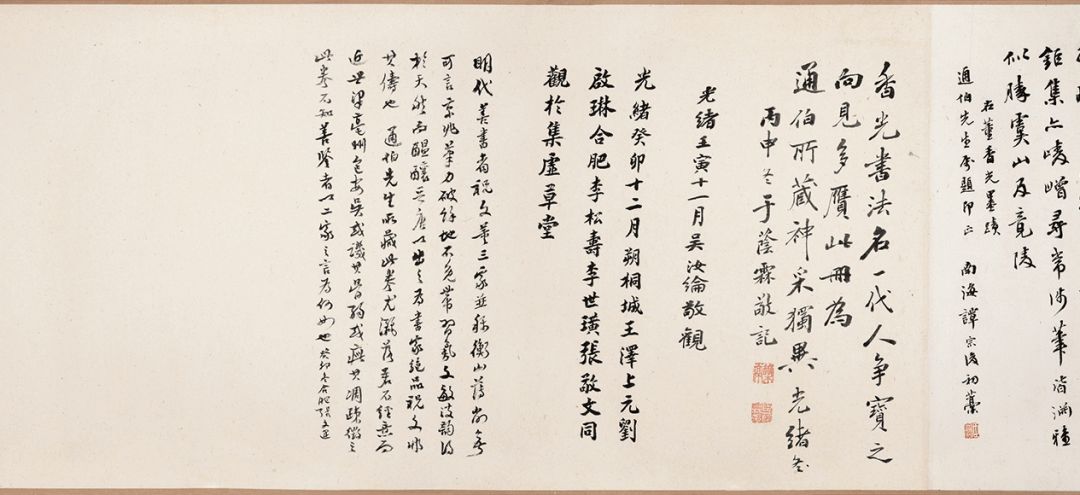 鉅集亦崚嶒尋常涉筆皆涵雅
似勝虞山及竟陵
右董香光墨蹟
通伯先生屬題即正 南海譚宗浚初藁
香光書法名一代人爭寶之
向見多贋此冊為
通伯所藏神采獨異光緒
丙申冬于蔭霖敬記
光緒壬寅十一月吳汝綸敬觀
光緒癸卯十二月朔桐城王澤上元劉
啟琳合肥李松壽李世璜張敬文同
觀於集虛草堂
明代善書者祝文董三家並稱衡山
可言京兆筆力破餘地不免帶習氣文敏
於天然而醞釀晉唐以出之為書家絕品祝文非
其儔也 通伯先生所藏此卷尤灑落若不經意而
近世梁亳州包安吳或譏其
此卷不知善鑒者以二家之言為何如也 癸卯冬合肥